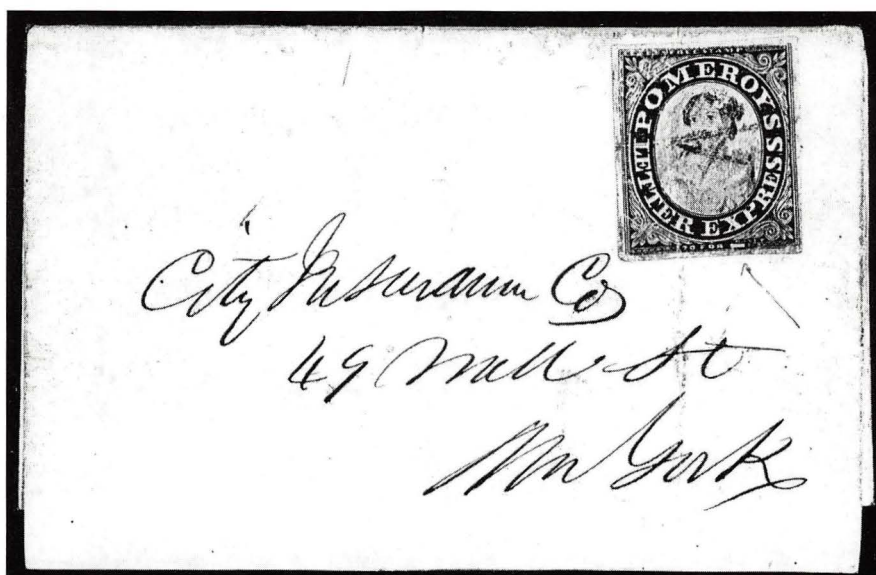 POMEROY'S
LETTER EXPRESS
20 FOR $1
City Insurance Co
49 Wall St
New York